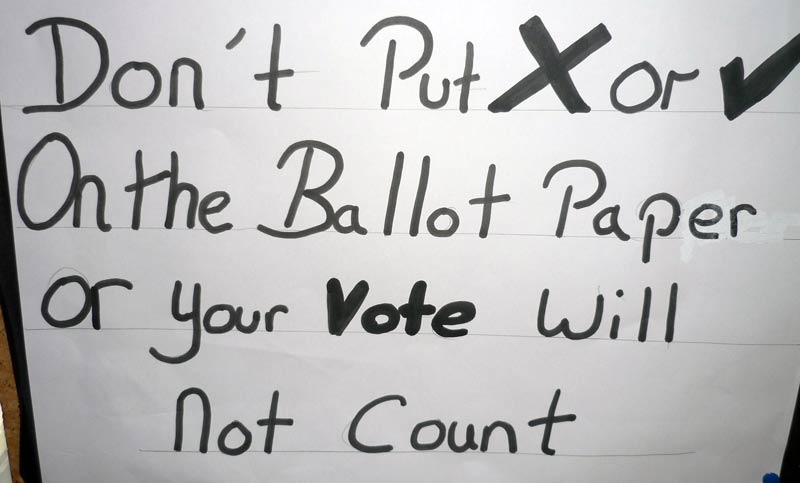 Don't Put ✗ or ✓
On the Ballot Paper
or your Vote Will
Not Count